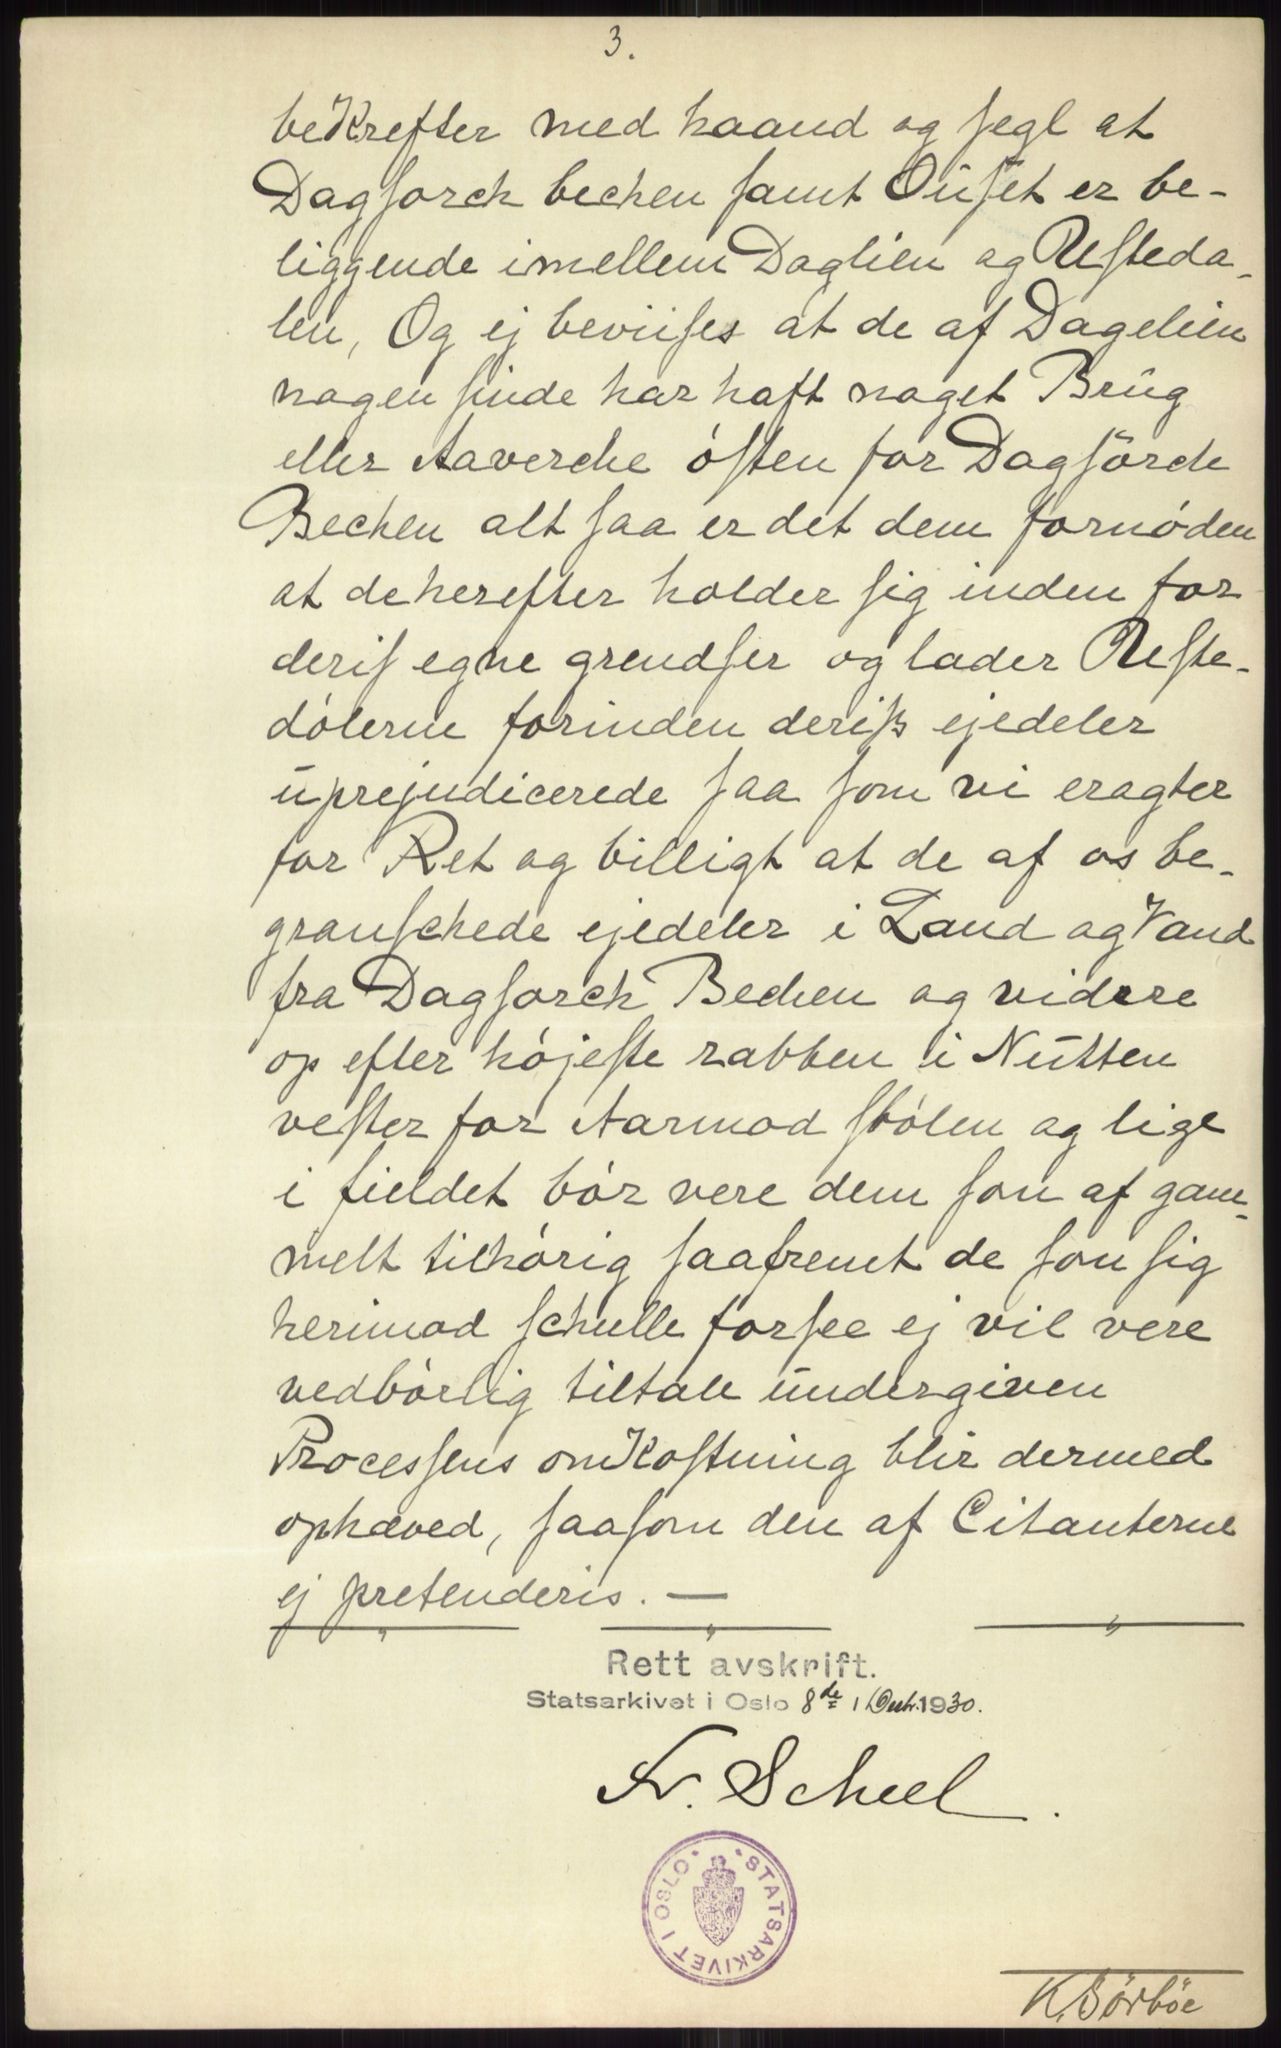 3.
beKrefter med haand og segl at
Dagsorck bechen samt Oüset er be-
liggende imellem Daglien og Usteda-
len, Og ej beviises at de af Dagelien
nogen sinde har haft noget Brüg
eller Aaverche østen for Dagsörch
Bechen alt saa er det dem fornøden
at de herefter holder sig inden for
deris egne grendser og lader Uste-
dølerne forinden deriss ejedeler
üprejudicerede saa som vi eragter
for Ret og billigt at de af os be-
granschede ejedeler i Land og Vand
fra Dagsorck Bechen og videre
op efter højeste rabben i Nütten
vester for Aarmod stølen og lige
i fieldet bør vere dem som af gam-
melt tilhørig saafremt de som sig
herimod schulle forsee ej vil vere
vedbørlig tiltale ündergiven
Processens omKostning blir dermed
ophæved, saasom den af Citanterne
ej pretenderis. —
Rett avskrift.
Statsarkivet i Oslo 8de 1930.
Fr. Scheel.
STATSARKIVET I OSLO
K. Børbøe